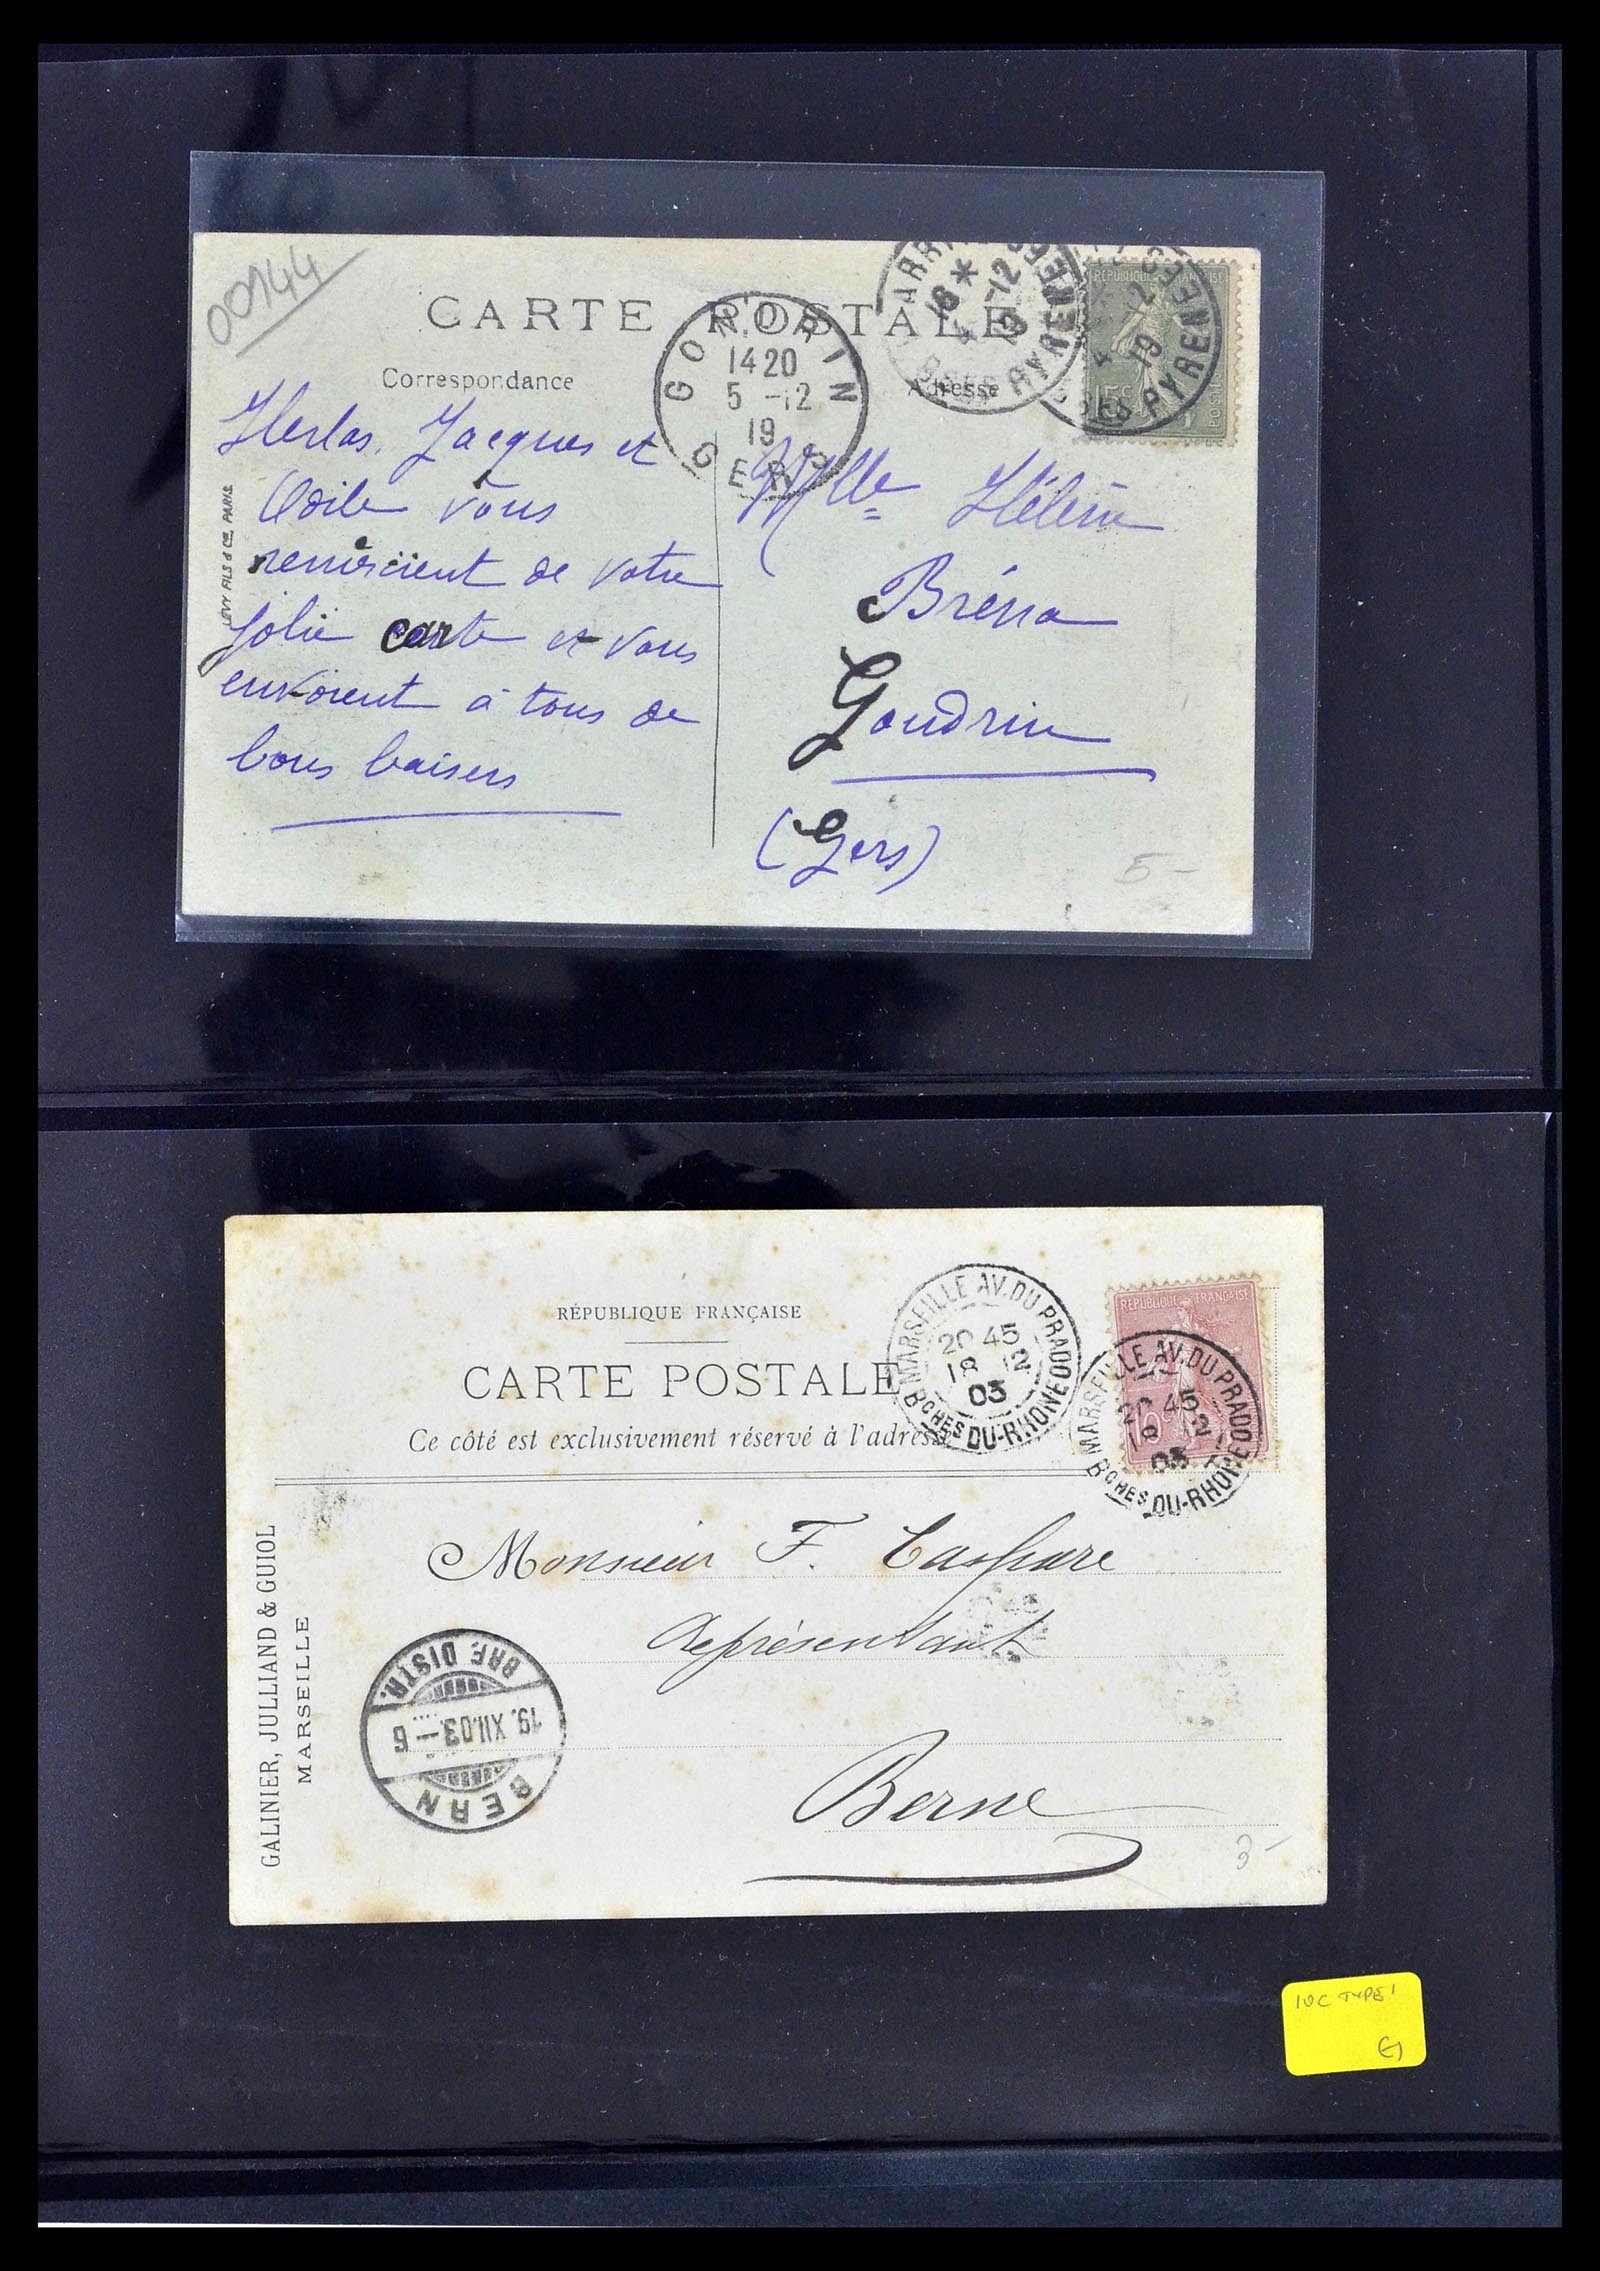 00144
CARTE POSTALE
Correspondance
Adresse
GONDRIN
1420
5 -12
19
GERS
16 *
4 -12
19
PYRENEES
REPUBLIQUE FRANÇAISE
15c
POSTES
4 12
19
BSES PYRENEES
LÉVY FILS & Cie PARIS
Jacques et
Odile vous
remercient de votre
jolie carte et vous
envoient à tous de
bons baisers
Mlle Hélène
Gondrin
(Gers)
5-
RÉPUBLIQUE FRANÇAISE
CARTE POSTALE
Ce côté est exclusivement réservé à l'adresse
MARSEILLE AV. DU PRADO
20 45
18 12
03
BCHES DU-RHONE
REPUBLIQUE FRANÇAISE
10c
MARSEILLE AV. DU PRADO
20 45
18 12
03
BCHES DU-RHONE
GALINIER, JULLIAND & GUIOL
MARSEILLE
Monsieur F. Caspare
Représentant
Berne
BERN
19. XII. 03. – 6
BRF. DISTR.
3-
10C TYPE 1